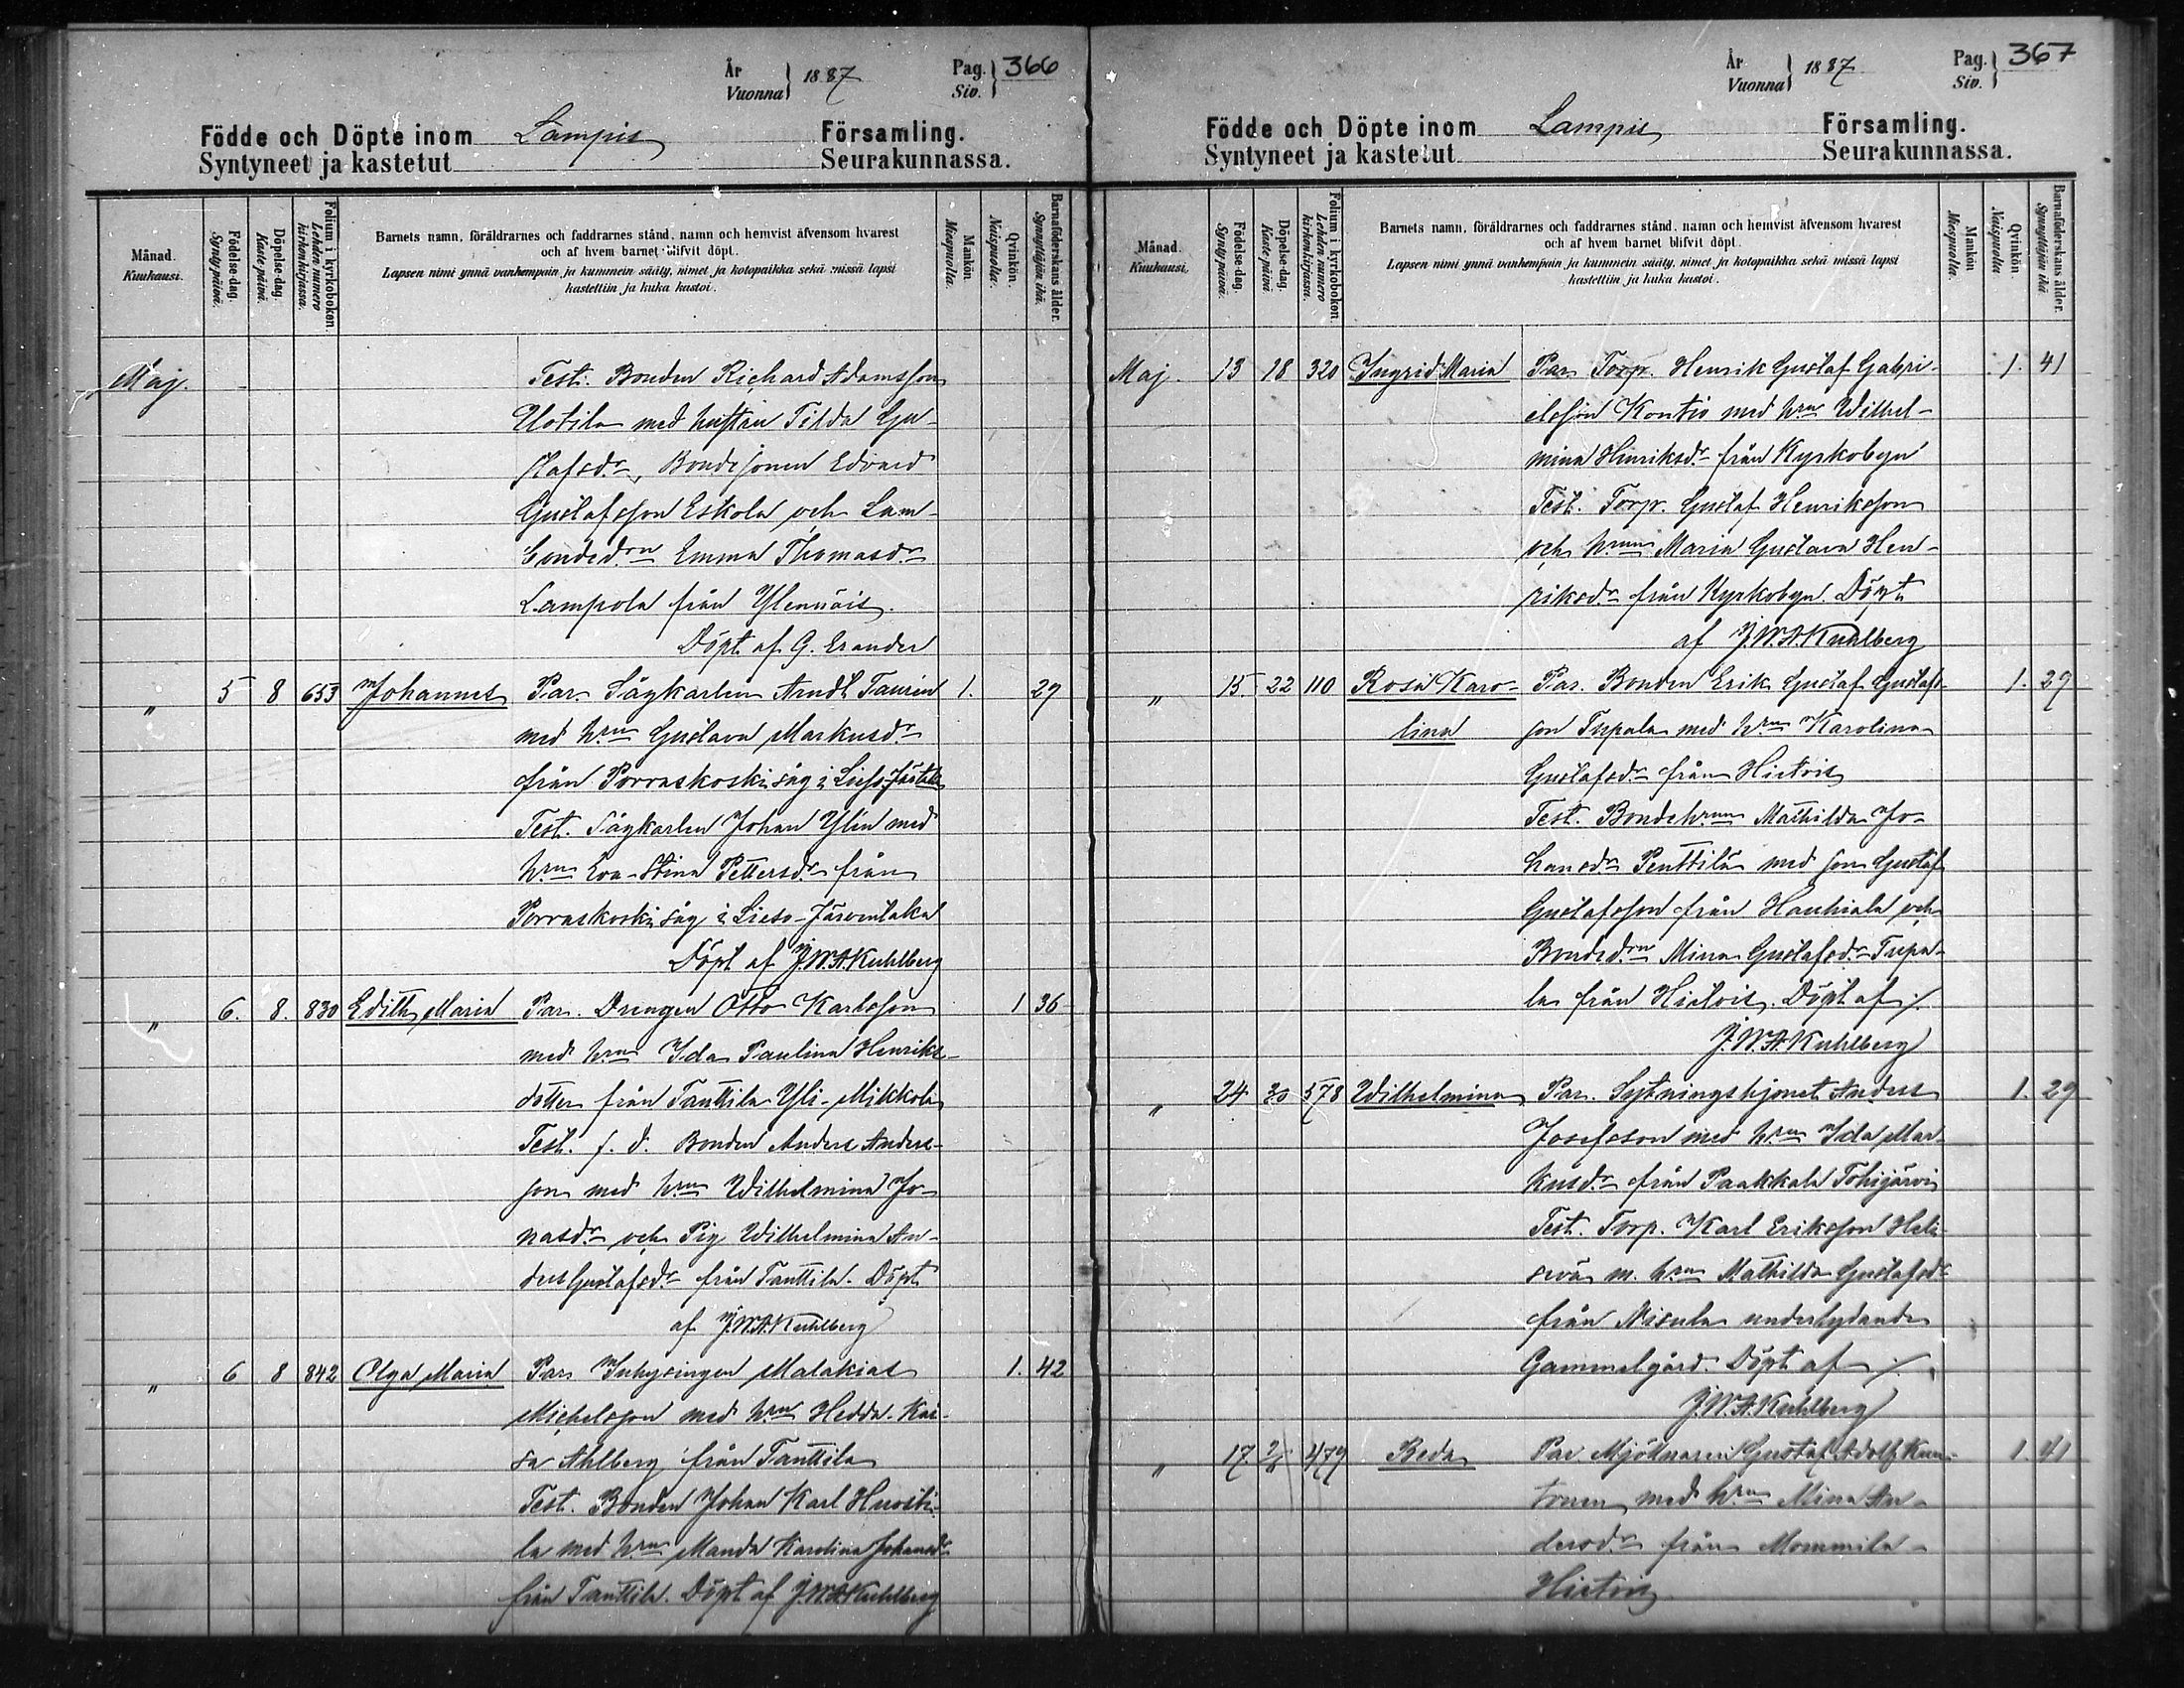 År
Vuonna } 1887
Pag.
Siv. } 366
Födde och Döpte inom Lampis Församling.
Syntyneet ja kastetut Seurakunnassa.
Månad.
Kuukausi.
Födelse-dag.
Synty päivä.
Döpelse-dag.
Kaste päivä.
Folium i kyrkoboken.
Lehden numero
kirkonkirjassa.
Barnets namn, föräldrarnes och faddrarnes stånd, namn och hemvist äfvensom hvarest
och af hvem barnet blifvit döpt.
Lapsen nimi ynnä vanhempain ja kummein sääty, nimet ja kotopaikka sekä missä lapsi
kastettiin ja kuka kastoi.
Mankön.
Miespuolta.
Qvinkön.
Naispuolta.
Barnaföderskans ålder.
Synnyttäjän ikä.
Maj. Test. Bonden Richard Adamsson
Uotila med hustru Tilda Gu-
stafsdr, Bondesonen Edvard
Gustafsson Eskola och Lam-
bondedrn Emma Thomasdr
Lampola från Ylennäis.
Döpt af G. Erander
" 5 8 653 Johannes Par. Sågkarlen Arndt Taurén 1. 29
med hrun Gustava Markusdr
från Porraskoski såg i Lieso
Test. Sågkarlen Johan Ylén med
hrun Eva Stina Pettersdr från
Porraskoski såg i Lieso-Järventaka
Döpt af J.W.A.Kuhlberg
" 6. 8. 830 Edith Maria Par. Drengen Otto Karlsson 1 36
med hrun Ida Paulina Henriks-
dotter från Tanttila Yli-Mikkola
Test. f. d. Bonden Anders Anders-
son med hrun Wilhelmina Jo-
nasdr och Pig. Wilhelmina An-
ders Gustafsdr från Tanttila. Döpt
af J.W.A.Kuhlberg
" 6 8 842 Olga Maria Par. Inhysingen Malakias 1. 42
Michelsson med hrun Hedda Kai-
sa Ahlberg från Tanttila
Test. Bonden Johan Karl Huosti-
la med hrun Manda Karolina Johansdr
från Tanttila. Döpt af J.W.A.Kuhlberg
År
Vuonna } 1887
Pag.
Siv. } 367
Födde och Döpte inom Lampis Församling.
Syntyneet ja kastetut Seurakunnassa.
Månad.
Kuukausi.
Födelse-dag.
Synty päivä.
Döpelse-dag.
Kaste päivä
Folium i kyrkoboken.
Lehden numero
kirkonkirjassa.
Barnets namn, föräldrarnes och faddrarnes stånd, namn och hemvist äfvensom hvarest
och af hvem barnet blifvit döpt.
Lapsen nimi ynnä vanhempain ja kummein sääty, nimet ja kotopaikka sekä missä lapsi
kastettiin ja kuka kastoi.
Mankön
Miespuolta.
Qvinkön.
Naispuolta.
Barnaföderskans ålder.
Synnyttäjän ikä
Maj. 13 18 320 Ingrid Maria Par. Torp. Henrik Gustaf Gabri- 1. 41
elsson Kontio med hrun Wilhel-
mina Henriksdr från Kyrkobyn
Test. Torp. Gustaf Henriksson
och hrun Maria Gustava Hen-
riksdr från Kyrkobyn. Döpt
af J.W.A.Kuhlberg
" 15. 22 110 Rosa Karo- Par. Bonden Erik Gustaf Gustafs- 1. 29
lina son Tupala med hrun Karolina
Gustafsdr från Hietois
Test. Bondehrun Mathilda Jo-
hansdr Penttilä med son Gustaf
Gustafsson från Hauhiala och
Bondedrn Mina Gustafsdr Tupa-
la från Hietois. Döpt af ./.
J.W.A.Kuhlberg
" 24 30 578 Wilhelmina Par. Sytningshjonet Anders 1. 29
Josefsson med hrun Ida Mar-
kusdr från Paakkala Tohijärvi
Test. Torp. Karl Eriksson Hele-
sevä m. hrun Mathilda Gustafsdr
från Nisula underlydande
Gammelgård. Döpt af ./.
J.W.A.Kuhlberg
" 17. 479 Beda Par. Mjölnaren Gustaf Adolf Kun- 1. 41
tonen med hrun Mina An-
dersdr från Mommila
Hietois